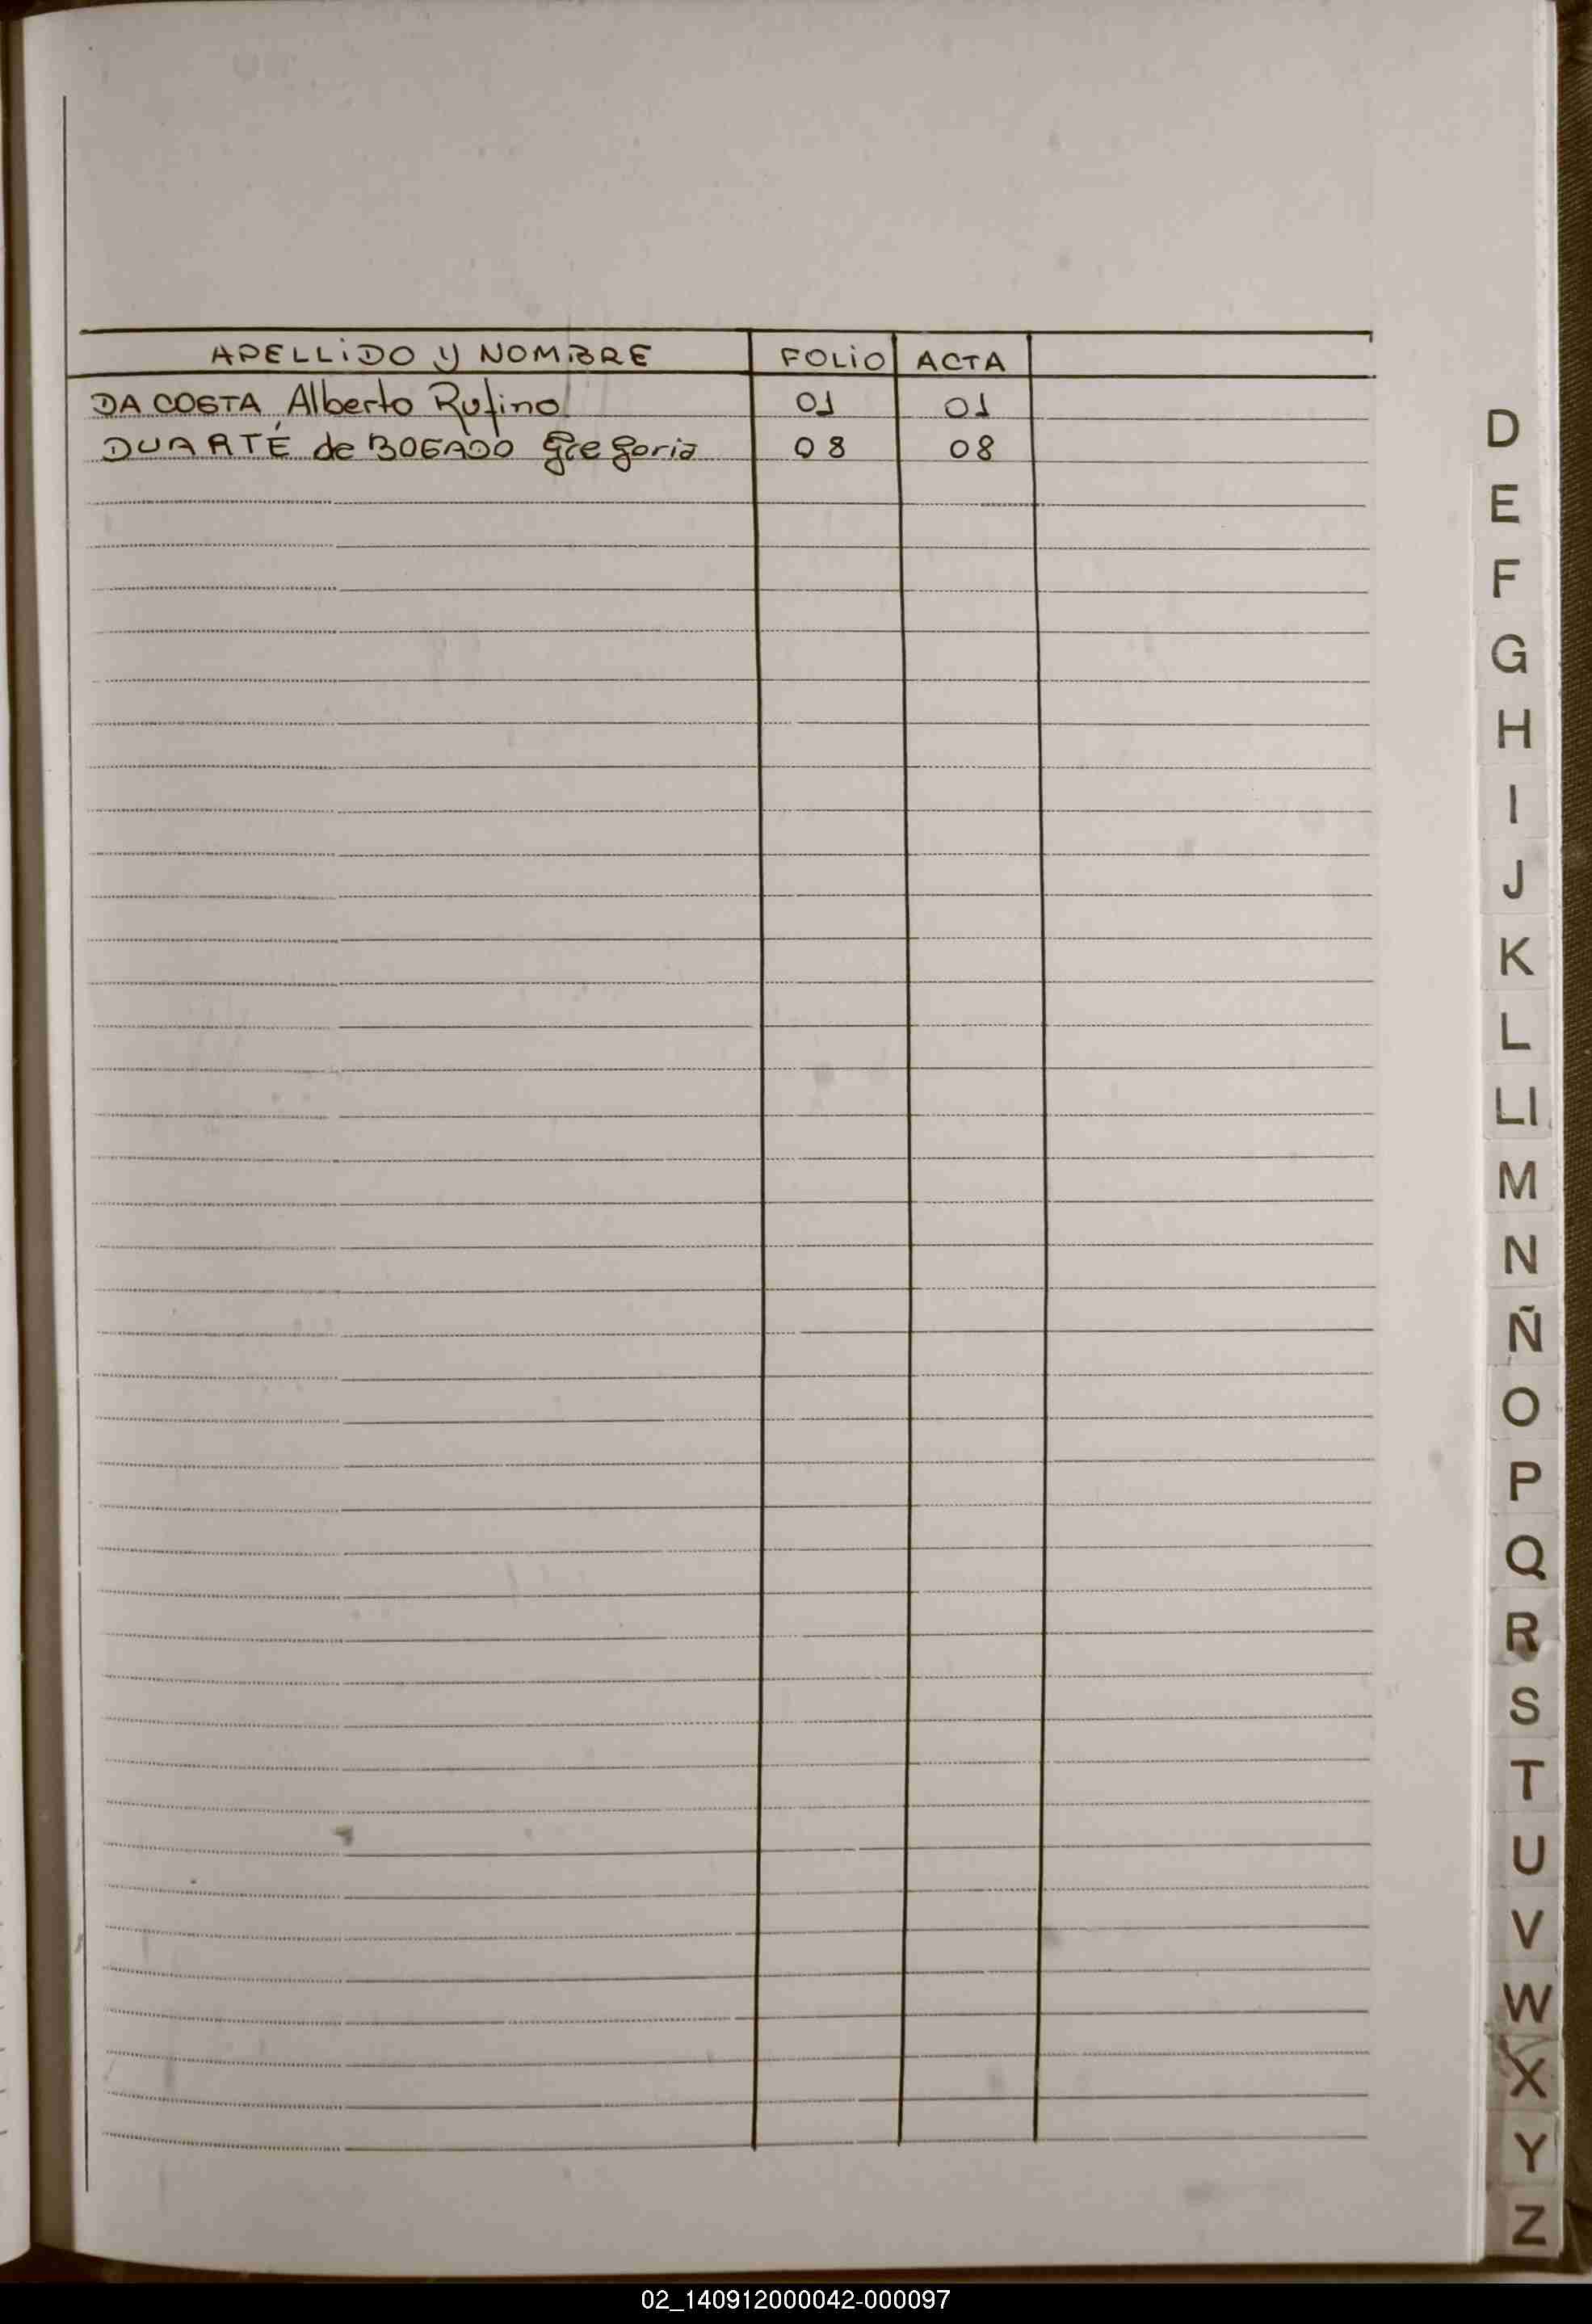 APELLIDO Y NOMBRE FOLIO ACTA
DA COSTA, Alberto Rufino 01 01
DUARTE de BOGADO Gregoria 08 08
D
E
F
G
H
I
J
K
L
Ll
M
N
Ñ
O
P
Q
R
S
T
U
V
W
X
Y
Z
02_140912000042-000097